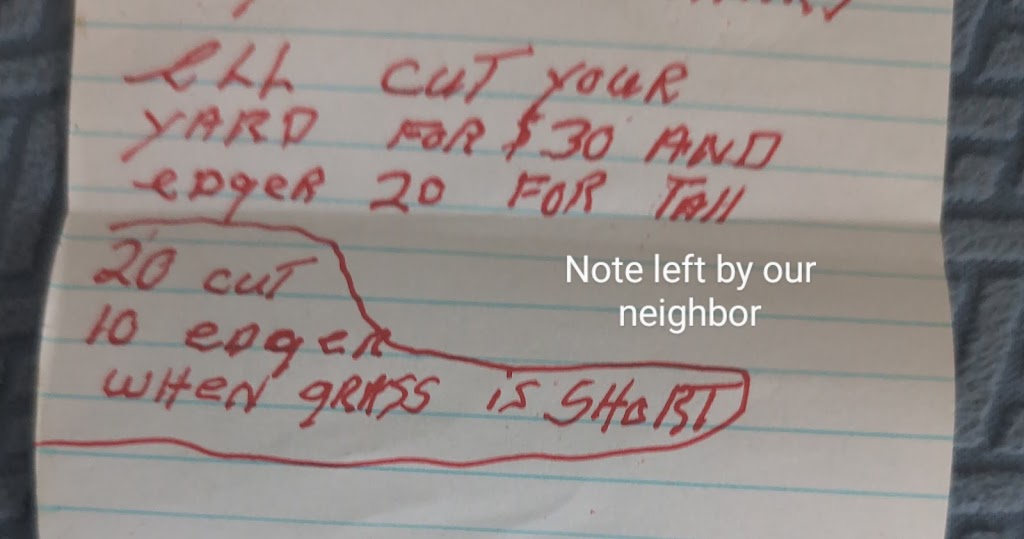 I'LL CUT YOUR
YARD FOR $30 AND
eDgeR 20 FOR TAll
20 CUT
10 eDgeR
WHEN gRASS is SHORT
Note left by our
neighbor